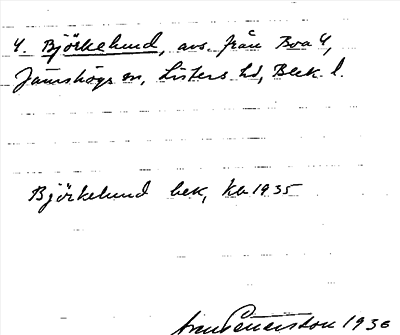 4. Björkelund, avs. från Boa 4,
Jämshögs sn, Listers hd, Blek. l.
Björkelund bek, kb 1935
1936